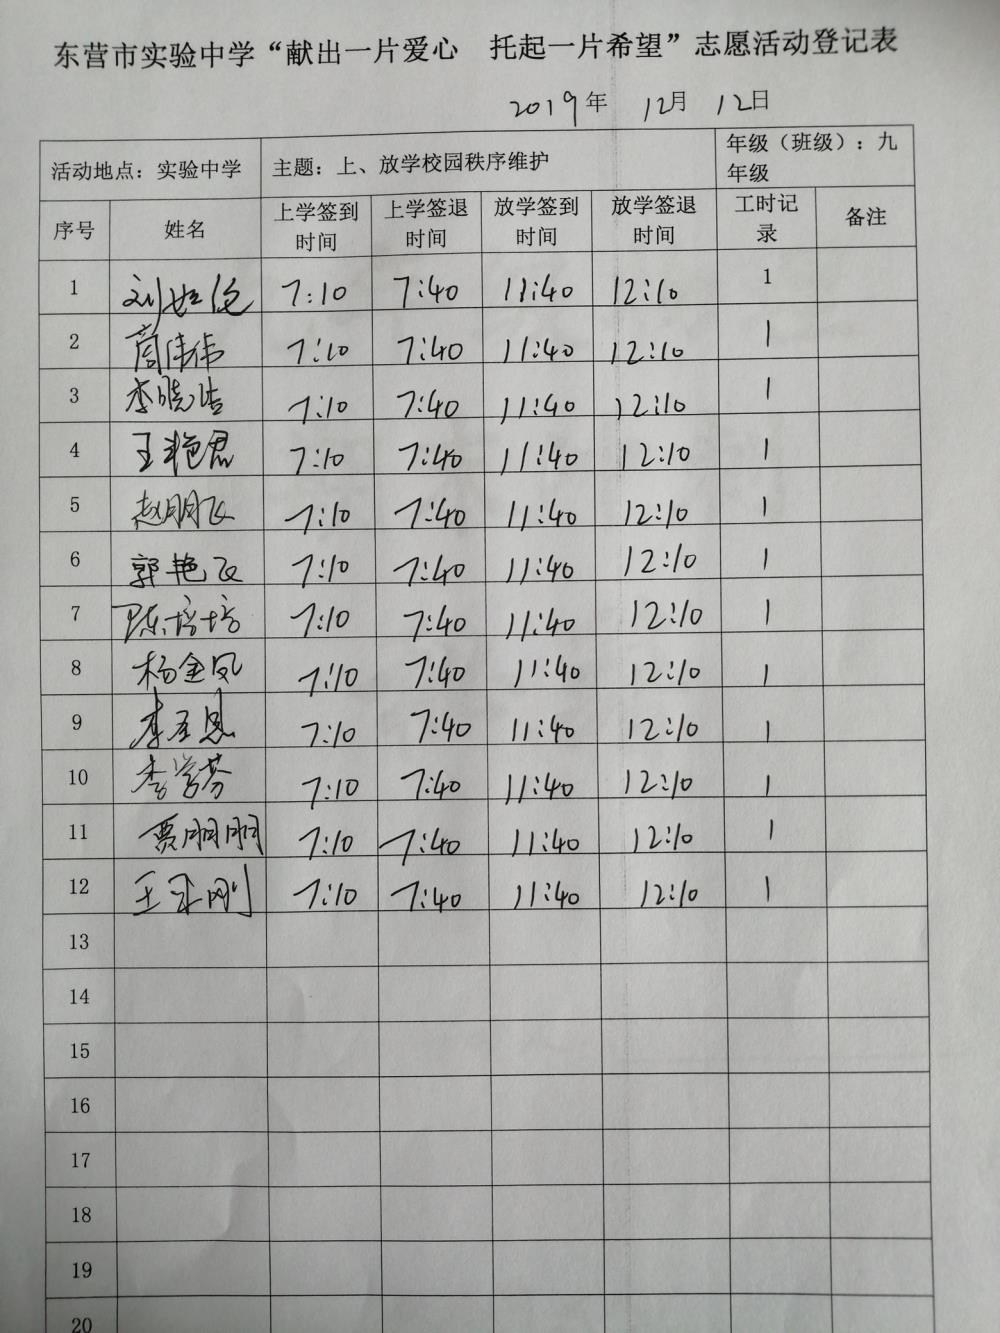 东营市实验中学“献出一片爱心 托起一片希望”志愿活动登记表
2019年 12月 12日
活动地点：实验中学 主题：上、放学校园秩序维护 年级（班级）：九年级
序号 姓名 上学签到时间 上学签退时间 放学签到时间 放学签退时间 工时记录 备注
1 刘 7:10 7:40 11:40 12:10 1
2 伟伟 7:10 7:40 11:40 12:10 1
3 李晓洁 7:10 7:40 11:40 12:10 1
4 王艳君 7:10 7:40 11:40 12:10 1
5 赵朋飞 7:10 7:40 11:40 12:10 1
6 郭艳飞 7:10 7:40 11:40 12:10 1
7 陈培培 7:10 7:40 11:40 12:10 1
8 杨金凤 7:10 7:40 11:40 12:10 1
9 李 7:10 7:40 11:40 12:10 1
10 李学芬 7:10 7:40 11:40 12:10 1
11 贾朋朋 7:10 7:40 11:40 12:10 1
12 王永刚 7:10 7:40 11:40 12:10 1
13
14
15
16
17
18
19
20